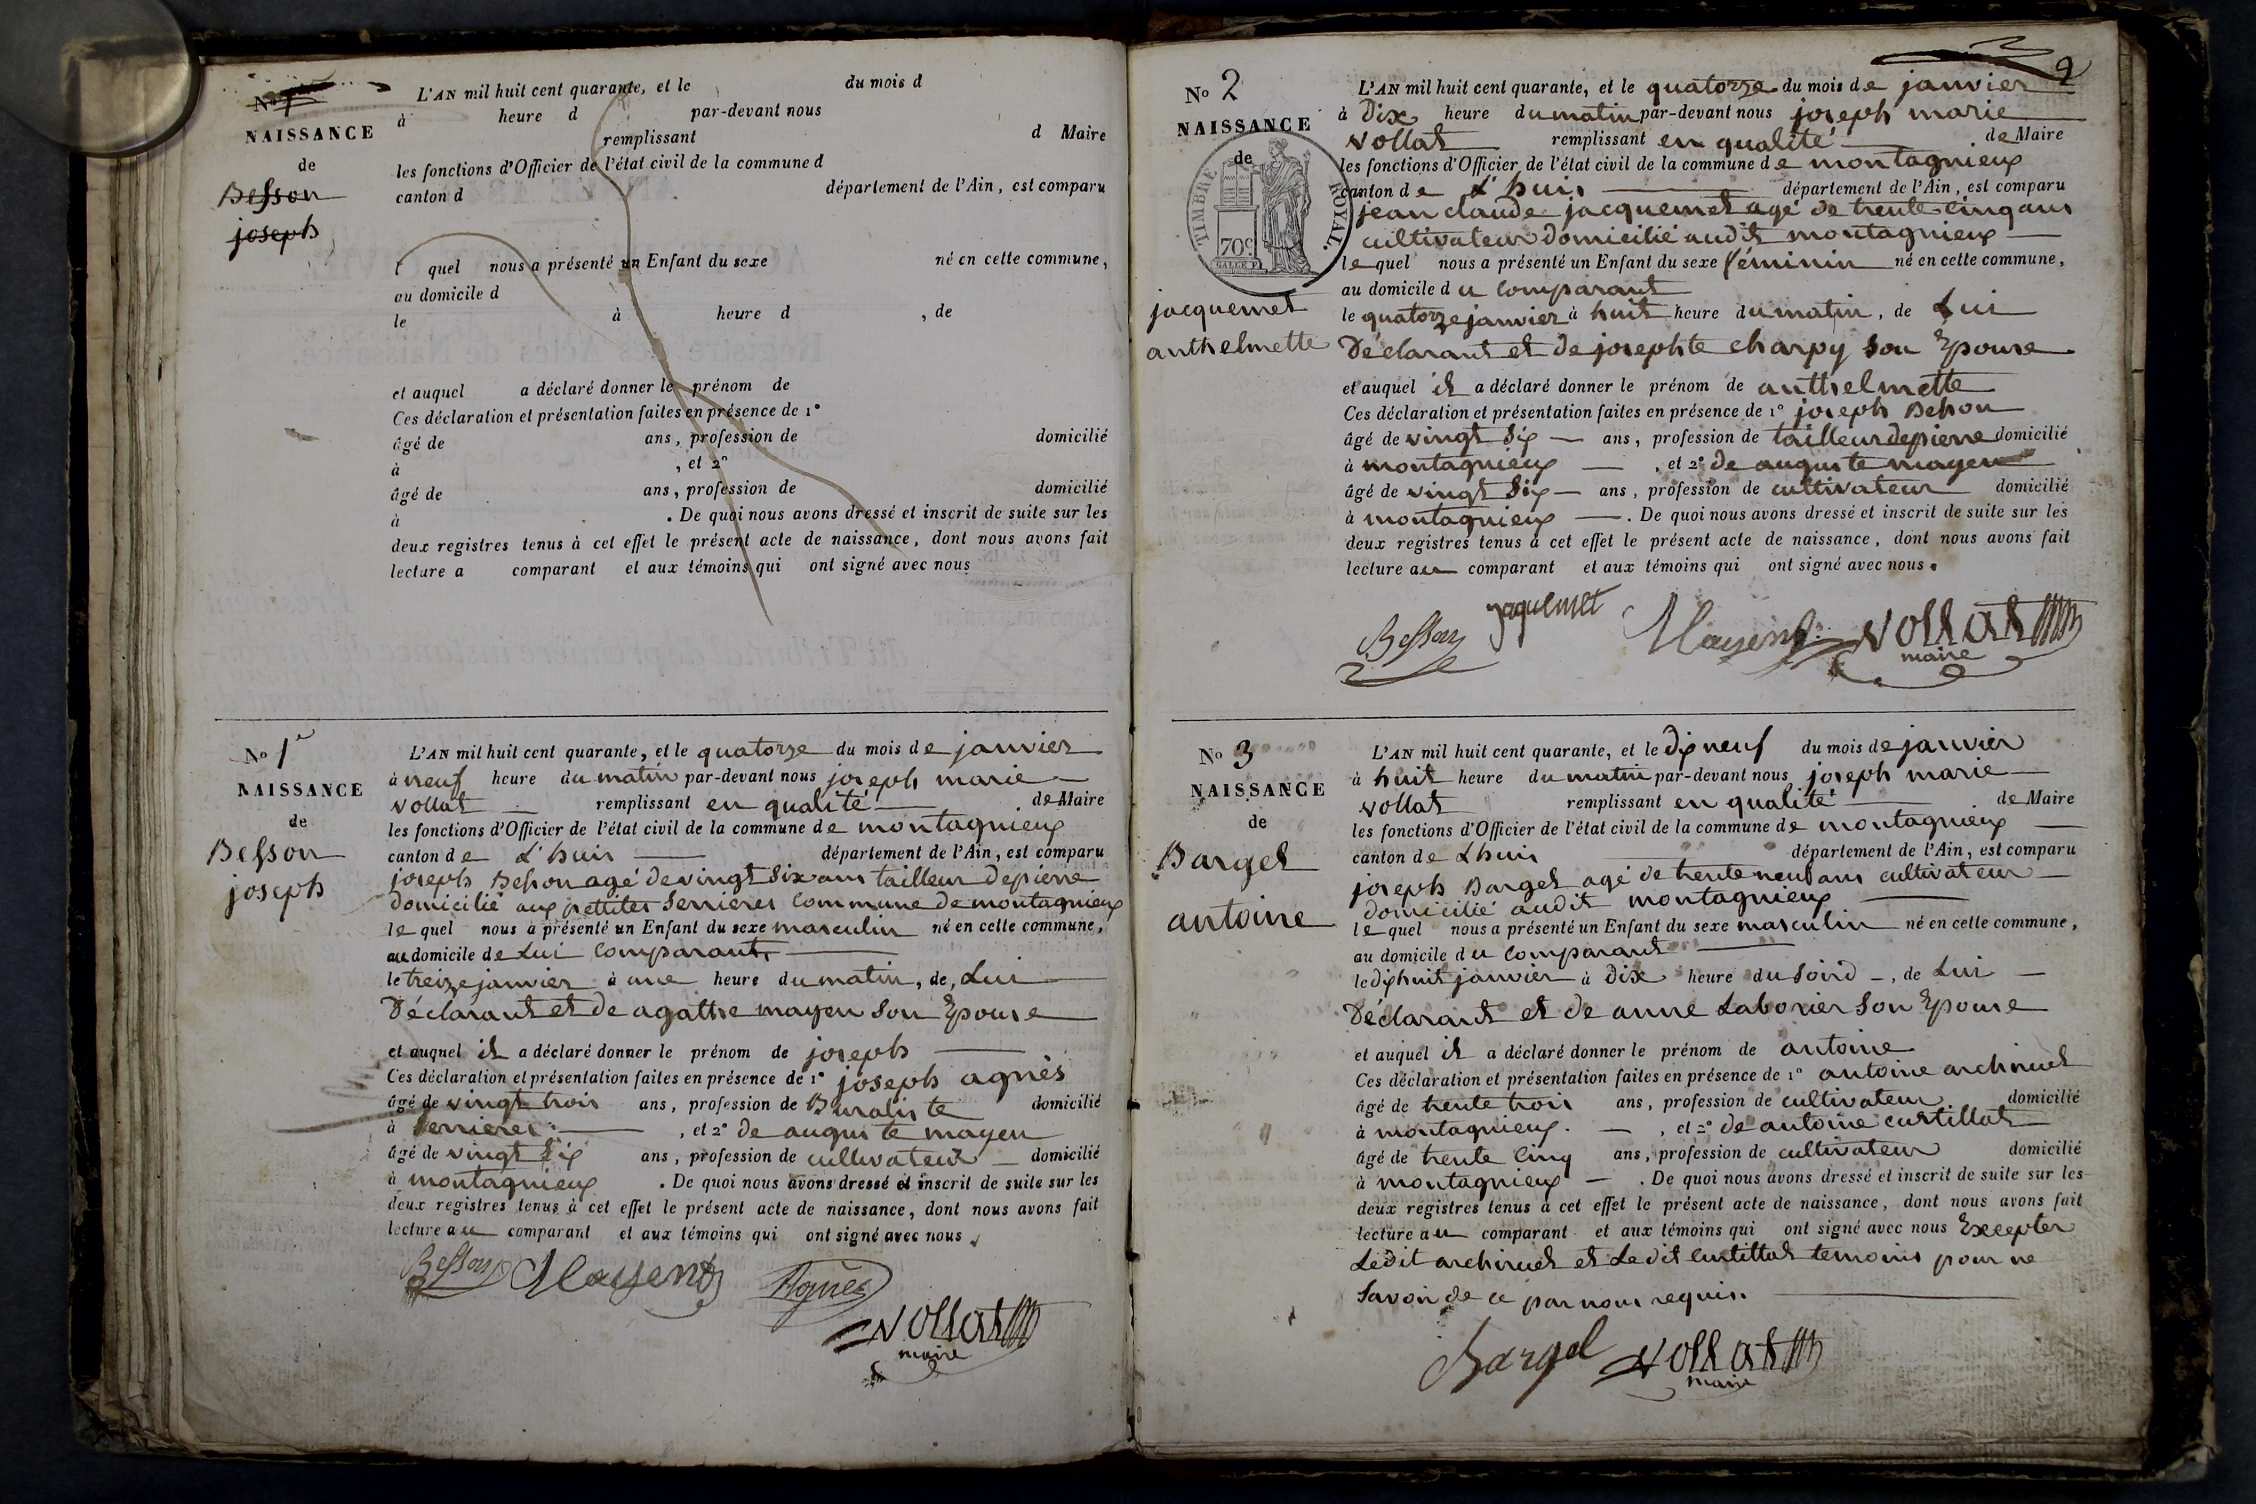 No 1
NAISSANCE
de
Besson
joseph
L'AN mil huit cent quarante, et le du mois d
à heure d par-devant nous
remplissant d Maire
les fonctions d'Officier de l'état civil de la commune d
canton d département de l'Ain, est comparu
l quel nous a présenté un Enfant du sexe né en cette commune,
au domicile d
le à heure d , de
et auquel a déclaré donner le prénom de
Ces déclaration et présentation faites en présence de 1°
âgé de ans, profession de domicilié
à , et 2°
âgé de ans, profession de domicilié
à . De quoi nous avons dressé et inscrit de suite sur les
deux registres tenus à cet effet le présent acte de naissance, dont nous avons fait
lecture a comparant et aux témoins qui ont signé avec nous
No 1
NAISSANCE
de
Besson
joseph
L'AN mil huit cent quarante, et le quatorze du mois de janvier
à neuf heure du matin par-devant nous joseph marie
vollat remplissant en qualité de Maire
les fonctions d'Officier de l'état civil de la commune de montagnieux
canton de L'huis département de l'Ain, est comparu
joseph Besson agé de vingt six ans tailleur de pierre
domicilié aux pettites Serrieres Commune de montagnieux
le quel nous a présenté un Enfant du sexe masculin né en cette commune,
au domicile de Lui Comparant
le treize janvier à une heure du matin, de Lui
Déclarant et de agathe mayen Son Epouse
et auquel il a déclaré donner le prénom de joseph
Ces déclaration et présentation faites en présence de 1° joseph agnès
âgé de vingt trois ans, profession de Buraliste domicilié
à Serrieres , et 2° de auguste mayen
âgé de vingt Six ans, profession de cultivateur domicilié
à montagnieux . De quoi nous avons dressé et inscrit de suite sur les
deux registres tenus à cet effet le présent acte de naissance, dont nous avons fait
lecture au comparant et aux témoins qui ont signé avec nous.
Besson Mayend Agnès
vollat
maire
2
No 2
NAISSANCE
de
TIMBRE ROYAL.
70c
jacquemet
anthelmette
L'AN mil huit cent quarante, et le quatorze du mois de janvier
à Dix heure du matin par-devant nous joseph marie
vollat remplissant en qualité de Maire
les fonctions d'Officier de l'état civil de la commune de montagnieux
canton de L'huis département de l'Ain, est comparu
jean claude jacquemet agé de trente cinq ans
cultivateur domicilié audit montagnieux
le quel nous a présenté un Enfant du sexe féminin né en cette commune,
au domicile du Comparant
le quatorze janvier à huit heure du matin, de Lui
Déclarant et de josephte charpy Son Epouse
et auquel il a déclaré donner le prénom de anthelmette
Ces déclaration et présentation faites en présence de 1° joseph Besson
âgé de vingt Six ans, profession de tailleur de pierre domicilié
à montagnieux , et 2° de auguste mayen
âgé de vingt Six ans, profession de cultivateur domicilié
à montagnieux . De quoi nous avons dressé et inscrit de suite sur les
deux registres tenus à cet effet le présent acte de naissance, dont nous avons fait
lecture au comparant et aux témoins qui ont signé avec nous.
Besson jaquemet Mayend vollat
maire
No 3
NAISSANCE
de
Barget
antoine
L'AN mil huit cent quarante, et le dix neuf du mois de janvier
à huit heure du matin par-devant nous joseph marie
vollat remplissant en qualité de Maire
les fonctions d'Officier de l'état civil de la commune de montagnieux
canton de Lhuis département de l'Ain, est comparu
joseph Barget agé de trente neuf ans cultivateur
domicilié audit montagnieux
le quel nous a présenté un Enfant du sexe masculin né en cette commune,
au domicile du Comparant
le dix huit janvier à Dix heure du Soir, de Lui
Déclarant et de anne Laborier Son Epouse
et auquel il a déclaré donner le prénom de antoine
Ces déclaration et présentation faites en présence de 1° antoine archinet
âgé de trente trois ans, profession de cultivateur domicilié
à montagnieux. , et 2° de antoine curtillat
âgé de trente Cinq ans, profession de cultivateur domicilié
à montagnieux . De quoi nous avons dressé et inscrit de suite sur les
deux registres tenus à cet effet le présent acte de naissance, dont nous avons fait
lecture au comparant et aux témoins qui ont signé avec nous Excepter
Ledit archinet et Ledit Curtillat temoins pour ne
Savoir de ce par nous requis.
Bargel vollat
maire